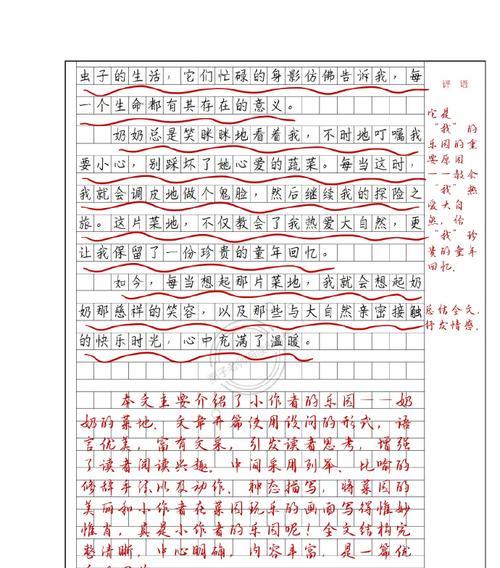 虫子的生活，它们忙碌的身影仿佛告诉我，每
一个生命都有其存在的意义。
奶奶总是笑眯眯地看着我，不时地叮嘱我
要小心，别踩坏了她心爱的蔬菜。每当这时，
我就会调皮地做个鬼脸，然后继续我的探险之
旅。这片菜地，不仅教会了我热爱大自然，更
让我保留了一份珍贵的童年回忆。
如今，每当想起那片菜地，我就会想起奶
奶那慈祥的笑容，以及那些与大自然亲密接触
的快乐时光，心中充满了温暖。
评语
它是
“我”的
乐园的重
要原因
——教会
“我”热
爱大自
然，给
“我”珍
贵的童年
回忆.
总结全文，
抒发情感.
本文主要介绍了小作者的乐园——奶
奶的菜地．文章开篇使用设问的形式，语
言优美，富有文采，引发读者思考，增强
了读者阅读兴趣．中间采用列举、比喻的
修辞手法以及动作、神态描写，将菜园的
美丽和小作者在菜园玩乐的画面写得惟妙
惟肖，真是小作者的乐园呢！全文结构完
整清晰，中心明确，内容丰富，是一篇优